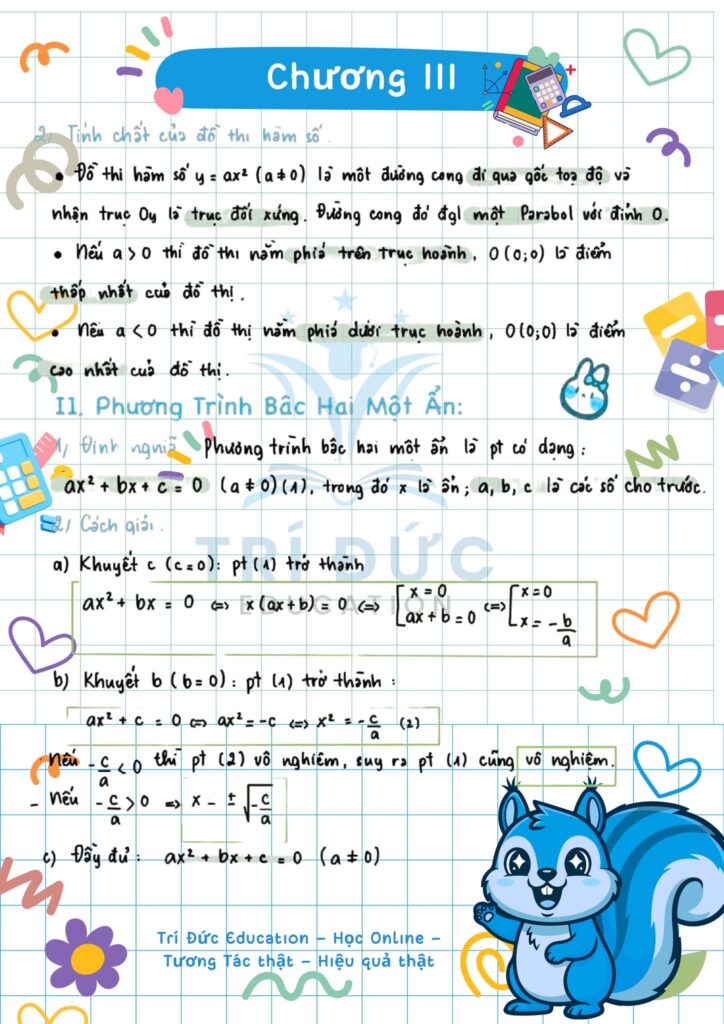 Chương III
2, Tính chất của đồ thị hàm số.
• Đồ thị hàm số y = ax² (a ≠ 0) là một đường cong đi qua gốc toạ độ và
nhận trục Oy là trục đối xứng. Đường cong đó đgl một Parabol với đỉnh O.
• Nếu a > 0 thì đồ thị nằm phía trên trục hoành, O(0;0) là điểm
thấp nhất của đồ thị.
• Nếu a < 0 thì đồ thị nằm phía dưới trục hoành, O(0;0) là điểm
cao nhất của đồ thị.
II. Phương Trình Bậc Hai Một Ẩn:
1, Định nghĩa Phương trình bậc hai một ẩn là pt có dạng:
ax² + bx + c = 0 (a ≠ 0) (1), trong đó x là ẩn; a, b, c là các số cho trước.
2, Cách giải.
TRÍ ĐỨC
EDUCATION
a) Khuyết c (c=0): pt (1) trở thành
ax² + bx = 0 <=> x(ax+b) = 0 <=> [x = 0 ; ax + b = 0 <=> [x = 0 ; x = -b/a
b) Khuyết b (b=0): pt (1) trở thành:
ax² + c = 0 <=> ax² = -c <=> x² = -c/a (2)
- Nếu -c/a < 0 thì pt (2) vô nghiệm, suy ra pt (1) cũng vô nghiệm.
- Nếu -c/a > 0 => x = ±√(-c/a)
c) Đầy đủ: ax² + bx + c = 0 (a ≠ 0)
Trí Đức Education – Học Online –
Tương Tác thật – Hiệu quả thật